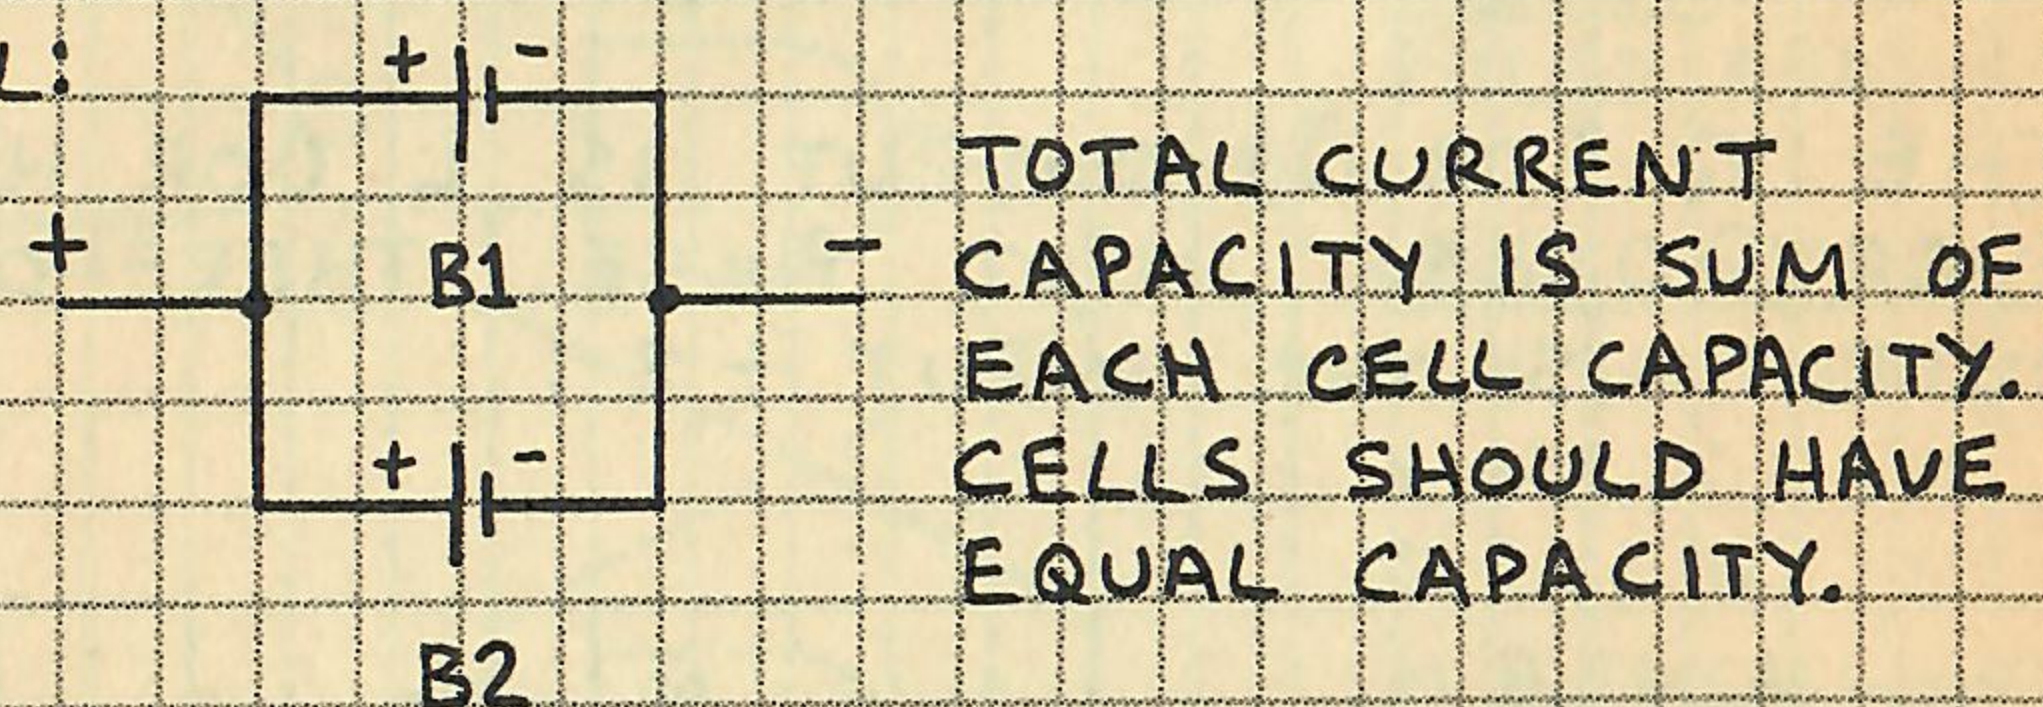 L:
+ -
+ -
B1
+ -
B2
TOTAL CURRENT
CAPACITY IS SUM OF
EACH CELL CAPACITY.
CELLS SHOULD HAVE
EQUAL CAPACITY.